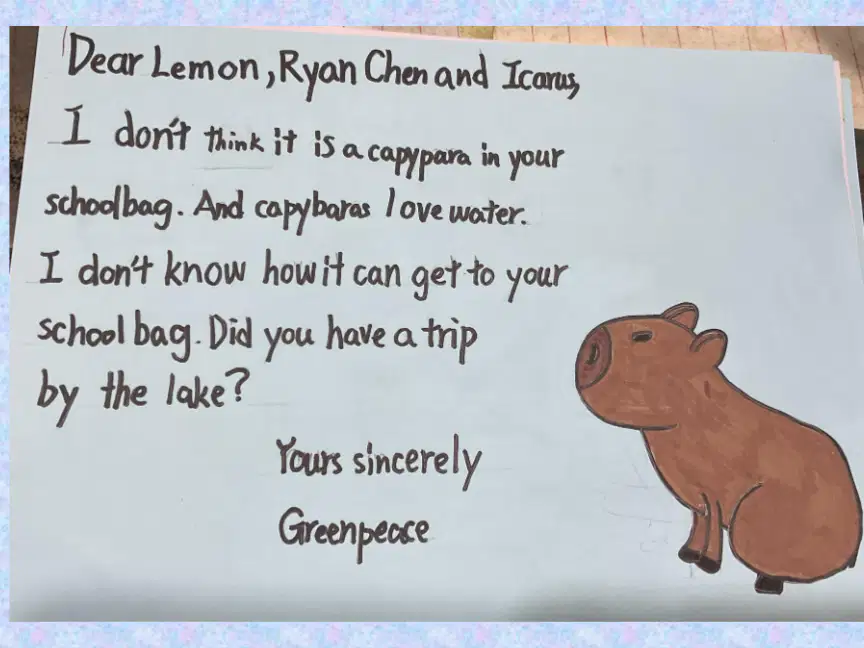 Dear Lemon, Ryan Chen and Icarus,
I don't think it is a capypara in your
schoolbag. And capybaras love water.
I don't know how it can get to your
school bag. Did you have a trip
by the lake?
Yours sincerely
Greenpeace